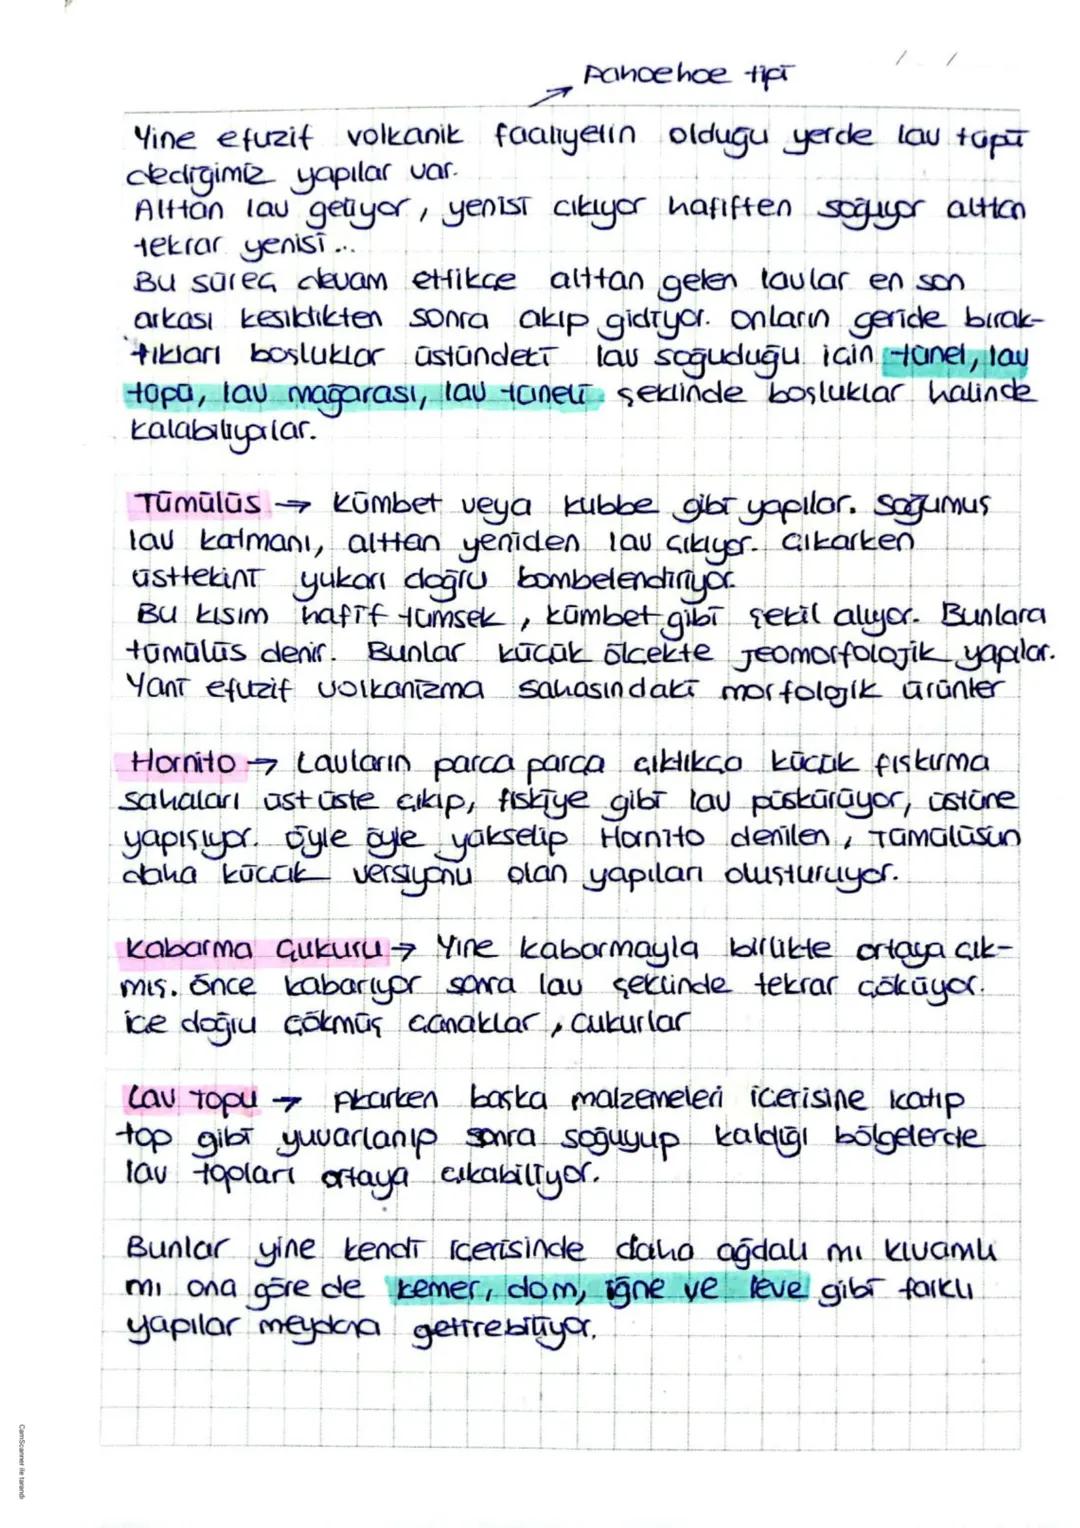 Pahoehoe tipi
/ /
Yine efuzif volkanik faaliyetin olduğu yerde lav tüpü
dediğimiz yapılar var.
Alttan lav geliyor, yenisi çıkıyor hafiften soğuyor alttan
tekrar yenisi...
Bu süreç devam ettikçe alttan gelen lavlar en son
arkası kesildikten sonra akıp gidiyor. Onların geride bırak-
tıkları boşluklar üstündeki lav soğuduğu için tünel, lav
tüpü, lav mağarası, lav tüneli şeklinde boşluklar halinde
kalabiliyorlar.
Tümülüs → Kümbet veya kubbe gibi yapılar. Soğumuş
lav katmanı, alttan yeniden lav çıkıyor. Çıkarken
üsttekini yukarı doğru bombelendiriyor.
Bu kısım hafif tümsek, kümbet gibi şekil alıyor. Bunlara
tümülüs denir. Bunlar küçük ölçekte jeomorfolojik yapılar.
Yani efuzif volkanizma sahasındaki morfolojik ürünler
Hornito → Lavların parça parça çıktıkça küçük fışkırma
sahaları üst üste çıkıp, fıskiye gibi lav püskürüyor, üstüne
yapışıyor. Öyle öyle yükselip Hornito denilen, Tümülüsün
daha küçük versiyonu olan yapıları oluşturuyor.
Kabarma Çukuru → Yine kabarmayla birlikte ortaya çık-
mış. Önce kabarıyor sonra lav şeklinde tekrar çöküyor.
İçe doğru çökmüş çanaklar, çukurlar
Lav Topu → Akarken başka malzemeleri içerisine katıp
top gibi yuvarlanıp sonra soğuyup kaldığı bölgelerde
lav topları ortaya çıkabiliyor.
Bunlar yine kendi içerisinde daha ağdalı mı kıvamlı
mı ona göre de kemer, dom, iğne ve leve gibi farklı
yapılar meydana getirebiliyor.
CamScanner ile tarandı